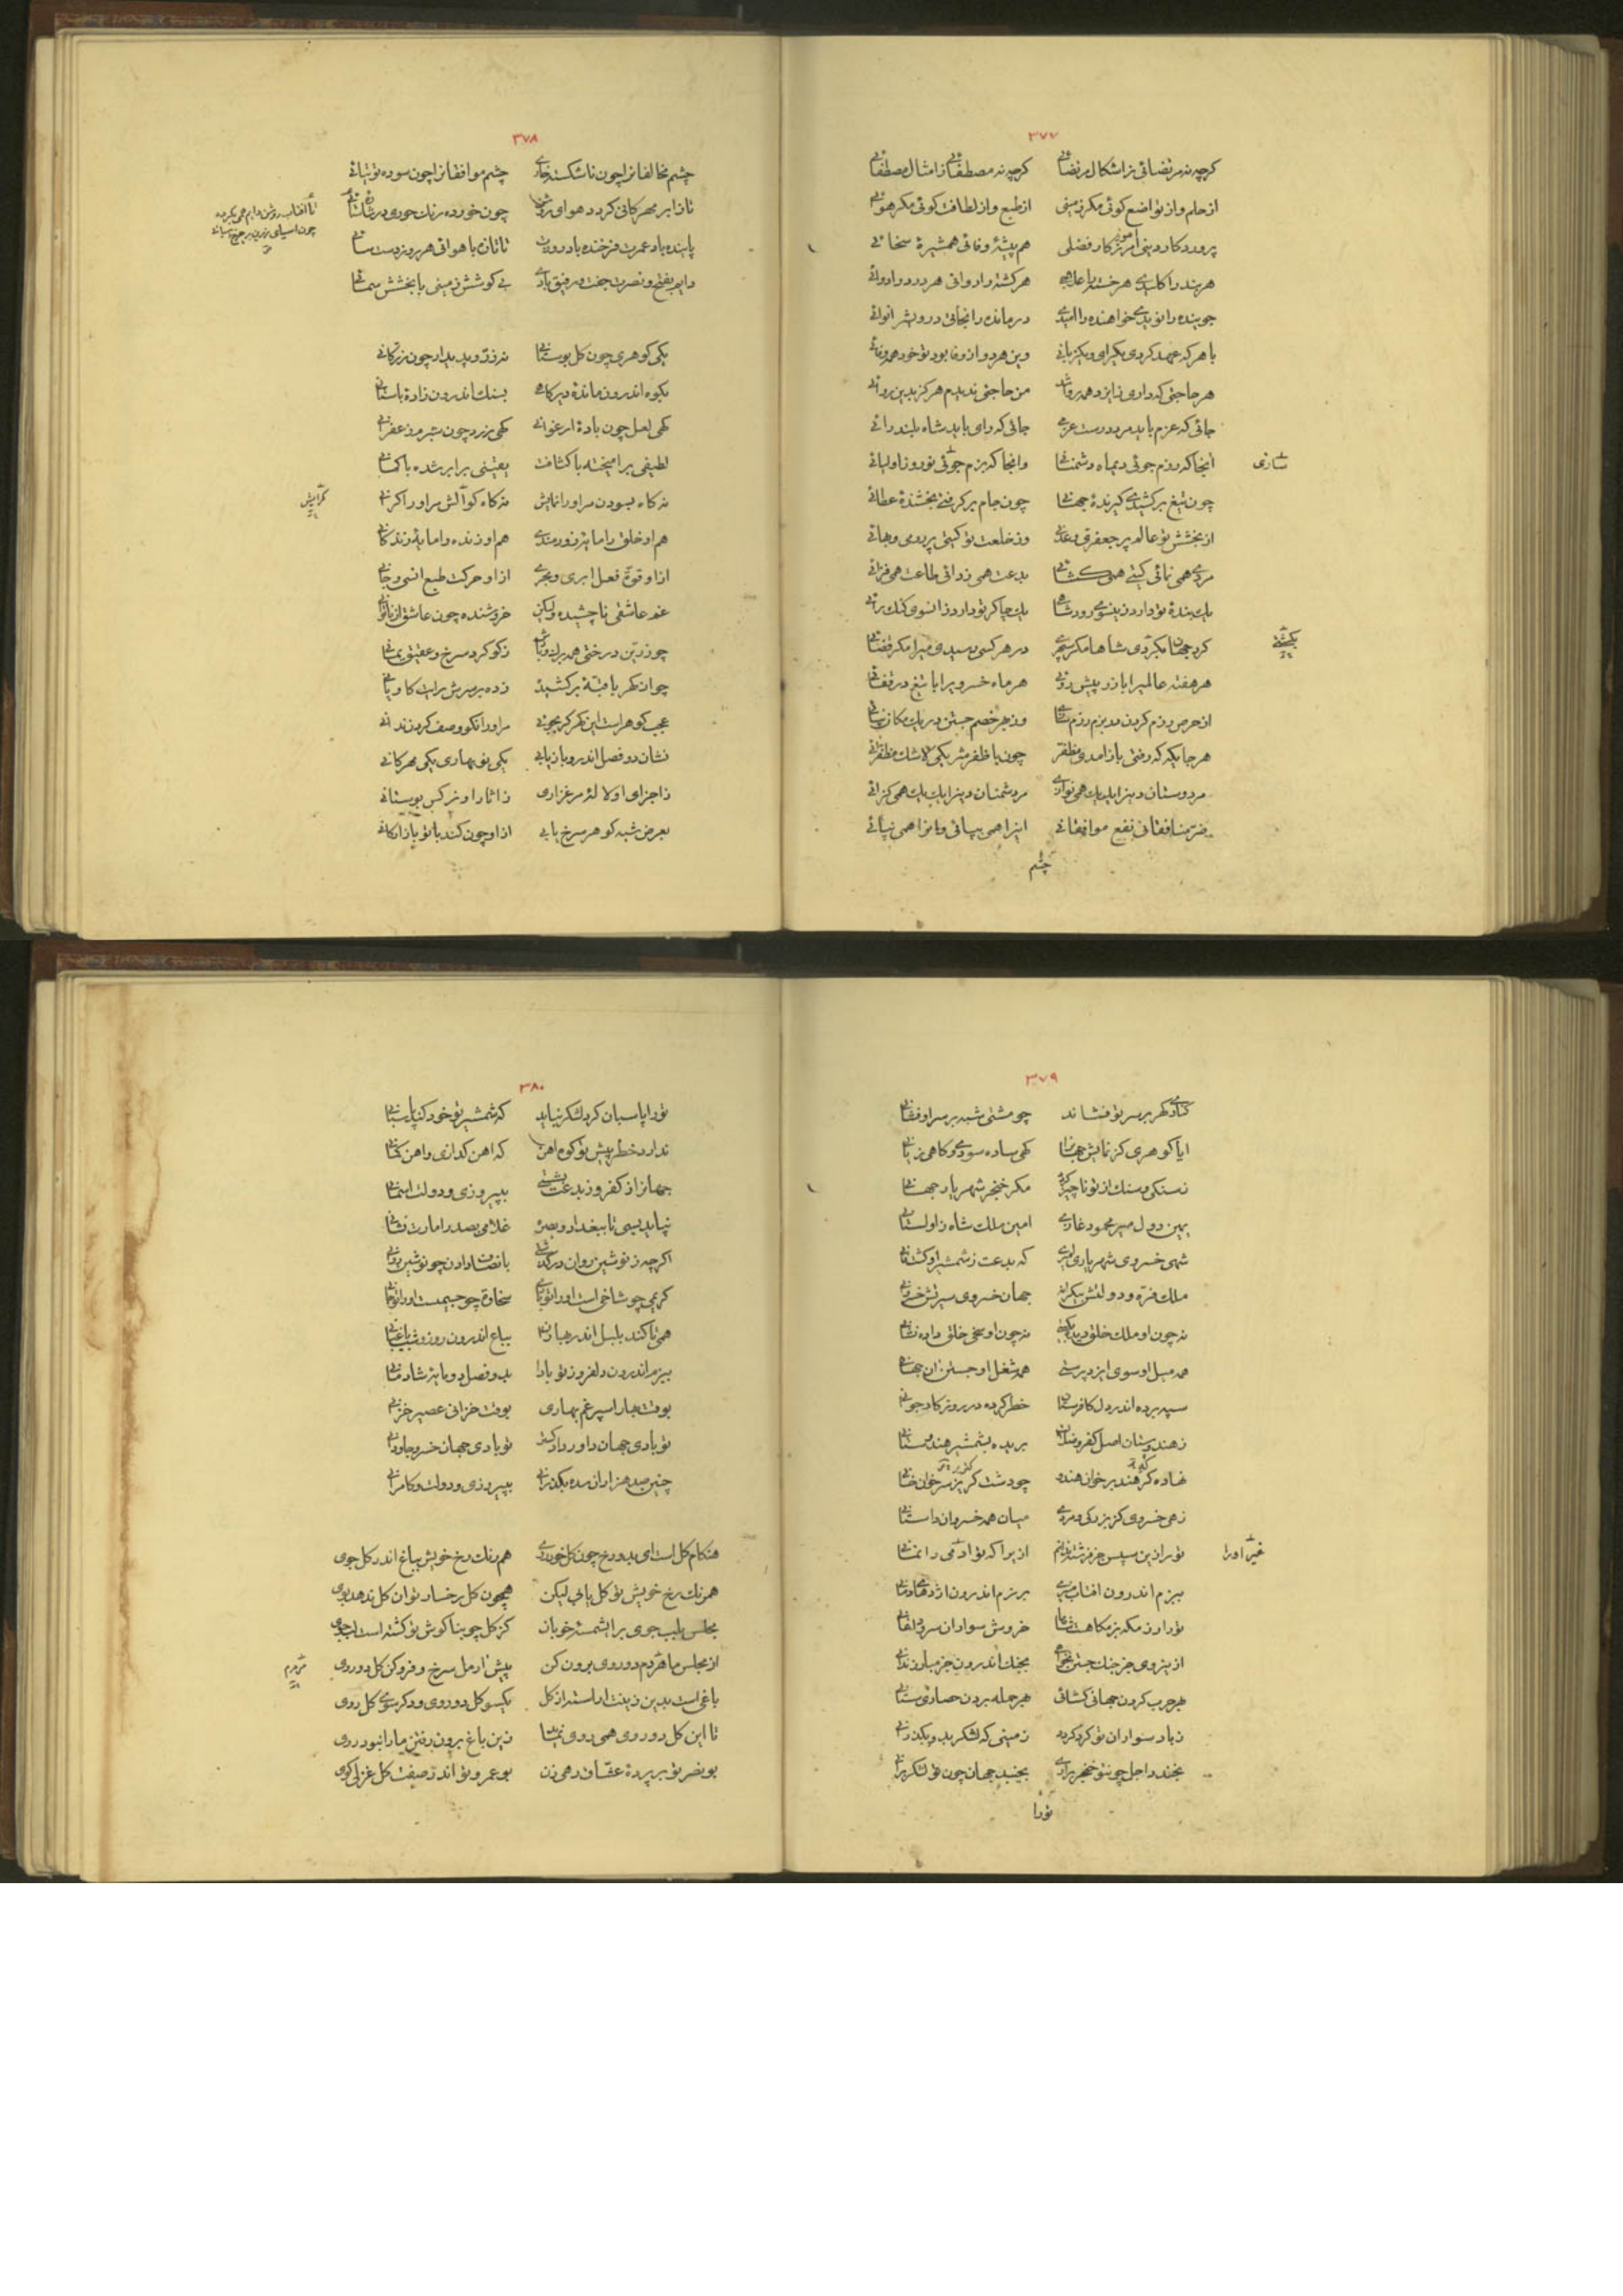 ۳۷۷
گرچه نه مرتضائی از اشکال مرتضائی گرچه نه مصطفائی از امثال مصطفائی
از حلم و از تواضع کوئی مکر زمینی از طبع و از لطافت کوئی مکر هوائی
پروردکار دینی آموزکار فضلی هم پیشهٔ وفائی همشیرهٔ سخائی
هر بند را کلیدی هر خسته را علاجی هر کشته را روانی هر درد را دوائی
جوینده را نویدی خواهنده را امیدی درمانده را نجاتی درویش را نوائی
با هر که عهد کردی یکرای و یکزبانی وین هر دو از وفا بود تو خود همه وفائی
هر حاجتی که داری زایزد همه روا شد من حاجتی ندیدم هرکز بدین روائی
جائی که عزم باید مر درست عزمی جائی که رای باید شاه بلند رائی
آنجا که رزم جوئی دیماه دشمنانی وانجا که بزم جوئی نوروز اولیائی
نثاری
چون تیغ برکشیدی کیرندهٔ جهانی چون جام برکرفتی بخشندهٔ عطائی
از بخشش تو عالم پر جعفری و عدنی وز خلعت تو کیتی پر رومی و بهائی
مردی همی نمائی کیتی همی کشائی بدعت همی زدائی طاعت همی فزائی
یک بندهٔ تو دارد زینسوی رود شاهی یک چاکر تو دارد زانسوی کنک رائی
کرد جهان بکردی شاها مکر سپهری در هر کسی رسیدی میرا مکر قضائی
هر هفته عالمی را باز در پیش روئی هر ماه خسروی را با تیغ در قفائی
از حرص رزم کردن در بزم رزم سازی وز بهر خصم جستن در یک مکان نپائی
هر جایکه که رفتی باز آمدی مظفر چون با ظفر شریکی لا شک مظفر آئی
مر دوستان دین را یک یک همی نوازی مر دشمنان دین را یک یک همی کزائی
ضر منافقانی نفع موافقانی این را همی بپائی وانرا همی نپائی
چشم
۳۷۸
چشم مخالفانرا چون ناشکسته خاری چشم موافقانرا چون سوده توتیائی
پاینده باد عمرت فرخنده باد روزت
دایم بفتح و نصرت جفت و رفیق بادی بی کوشش زمینی با بخشش سمائی
یکی کوهری چون کل بوستانی نه زر و بدیدار چون زر کانی
بکوه اندرون ماندهٔ دیرکاهی بسنک اندرون زادهٔ باستانی
کهی لعل چون بادهٔ ارغوانی کهی زرد چون بیرم زعفرانی
لطیفی برآمیخته با کثافت یقینی برابر شده با کمانی
نه کاه بسودن مر او را نمایش نه کاه کوآلش مر او را کرانی
کرایش
هم او خلق را مایهٔ زورمندی هم او زنده را مایهٔ زندکانی
ازو قوت فعل ابری و بحری ازو حرکت طبع انسی و جانی
غم عاشقی ناچشیده ولیکن خروشنده چون عاشق از ناتوانی
چو زرین درختی همه برک و بارش ز کوکرد سرخ و عقیق یمانی
چو از کهربا قبهٔ برکشیده زده بر سرش رایت کاویانی
عجب کوهر است این کهر کر بجوئی مر او را نکو وصف کردن ندانی
نشان دو فصل اندرو باز یابی یکی نوبهاری یکی مهرکانی
ز اجزای او لالهٔ مرغزاری ز آثار او نرکس بوستانی
بعرض شبه کوهر سرخ یابی ازو چون کند با تو بازارکانی
۳۷۹
کناری کهر بر سر تو فشاند چو مشتی شبه بر سر او فشانی
ایا کوهری کز نمایش جهانرا کهی ساده سودی و کاهی زیانی
ز سنکی و سنک از تو ناچیز کردد مکر خنجر شهریار جهانی
یمین دول میر محمود غازی امین ملل شاه زاولستانی
شهی خسروی شهریاری امیری که بدعت ز شمشیر او کشت فانی
ملک فره و دولتش بیکرانه جهان خسروی سیرتش خسروانی
نه چون او ملک خلق دیده بکیتی نه چون او سخی خلق داده نشانی
همه میل او سوی ایزد پرستی همه شغل او جستن آن جهانی
سپه برده اندر دل کافرستان خطر کرده در روزکار جوانی
ز هندوستان اصل کفر و ضلالت بریده بشمشیر هندوستانی
زهی خسروی کز بزرکی و مردی میان همه خسروان داستانی
تو را زین سپس جز فرشته نخوانم ازیرا که تو آدمی را نمانی
غیر او را
ببزم اندرون آفتاب منیری برزم اندرون اژدهای دمانی
تورا رزمکه بزمکاهست شاها خروش سواران سرود اغانی
از ین روی جز جنک جستن نخواهی بجنک اندرون جز مبارز ندانی
بهر حرب کردن جهانی کشائی بهر حمله بردن حصاری ستانی
ز باد سواران تو کرد کردد زمینی که لشکر بدو بکذرانی
بخندد اجل چون تو خنجر برآری بجنبد جهان چون تو لشکر برانی
تورا
۳۸۰
تورا پاسبان کرد لشکر نیاید که شمشیر تو خود کند پاسبانی
ندارد خطر پیش تو کوه آهن که آهن کدازی و آهن کمانی
جهانرا ز کفر و ز بدعت بشستی بپیروزی و دولت آسمانی
نپاید بسی تا ببغداد و بصره غلامی بصدر امارت نشانی
اکرچه ز نوشین روان درکذشتی بانصاف دادن چو نوشین روانی
کریمی چو شاخی است او را تو باری سخاوت چو جسمیست او را تو جانی
همی تا کند بلبل اندر بهاران بباغ اندرون روز و شب باغبانی
ببزم اندرون دلفروز تو بادا بدو فصل دو مایهٔ شادمانی
بوقت بهار اسپرغم بهاری بوقت خزانی عصیر خزانی
تو بادی جهان داور دادکستر تو بادی جهان خسرو جاودانی
چنین صد هزاران سده بکذرانی بپیروزی و دولت و کامرانی
هنکام کل است ای بدو رخ چون کل خودروی هم رنک رخ خویش بباغ اندر کل جوی
همرنک رخ خویش تو کل یابی لیکن همچون کل رخسار تو آن کل ندهد بوی
مجلس بلب جوی بر ای شمسهٔ خوبان کز کل چو بناکوش تو کشته است لب جوی
از مجلس ما مردم دوروی برون کن پیش آر مل سرخ و فروکن کل دوروی
مردم
باغی است بدین زینت آراسته از کل یکسو کل دوروی و دکر سوی کل روی
تا این کل دوروی همی روی نماید زین باغ برون رفتن ما را نبود روی
بونصر تو بر پردهٔ عشاق رهی زن بوعمرو تو اندر صفت کل غزلی کوی